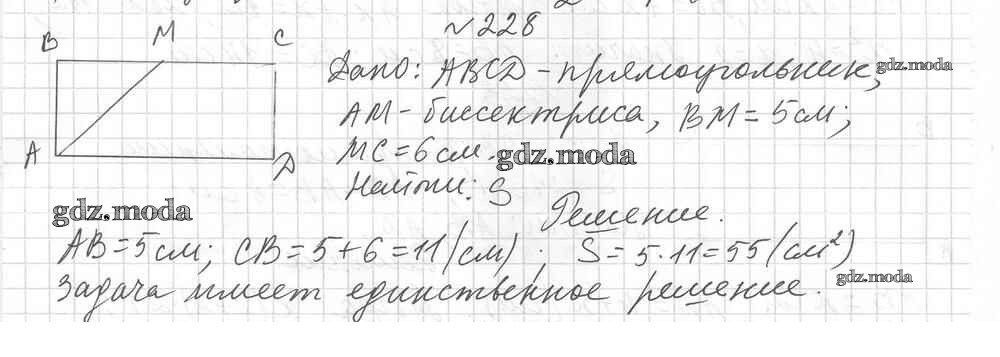 №228
B M C
Дано: ABCD - прямоугольник, gdz.moda
AM - биссектриса, BM = 5см;
A MC = 6см. gdz.moda
D
Найти: S
gdz.moda Решение.
AB = 5см; CB = 5 + 6 = 11 (см); S = 5·11 = 55 (см²)
gdz.moda
Задача имеет единственное решение.